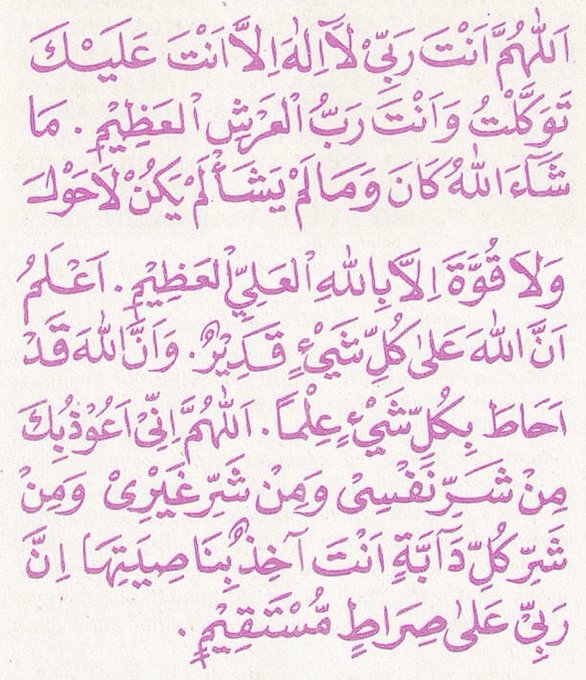 اَللّٰهُمَّ اَنْتَ رَبِّيْ لَآ اِلٰهَ اِلَّا اَنْتَ عَلَيْكَ
تَوَكَّلْتُ وَاَنْتَ رَبُّ الْعَرْشِ الْعَظِيْمِ. مَا
شَآءَ اللّٰهُ كَانَ وَمَا لَمْ يَشَأْ لَمْ يَكُنْ لَاحَوْلَ
وَلَا قُوَّةَ اِلَّا بِاللّٰهِ الْعَلِيِّ الْعَظِيْمِ. اَعْلَمُ
اَنَّ اللّٰهَ عَلٰى كُلِّ شَيْءٍ قَدِيْرٌ. وَاَنَّ اللّٰهَ قَدْ
اَحَاطَ بِكُلِّ شَيْءٍ عِلْمًا. اَللّٰهُمَّ اِنِّيْ اَعُوْذُ بِكَ
مِنْ شَرِّ نَفْسِيْ وَمِنْ شَرِّ غَيْرِيْ وَمِنْ
شَرِّ كُلِّ دَآبَّةٍ اَنْتَ آخِذٌ بِنَاصِيَتِهَا اِنَّ
رَبِّيْ عَلٰى صِرَاطٍ مُّسْتَقِيْمٍ.